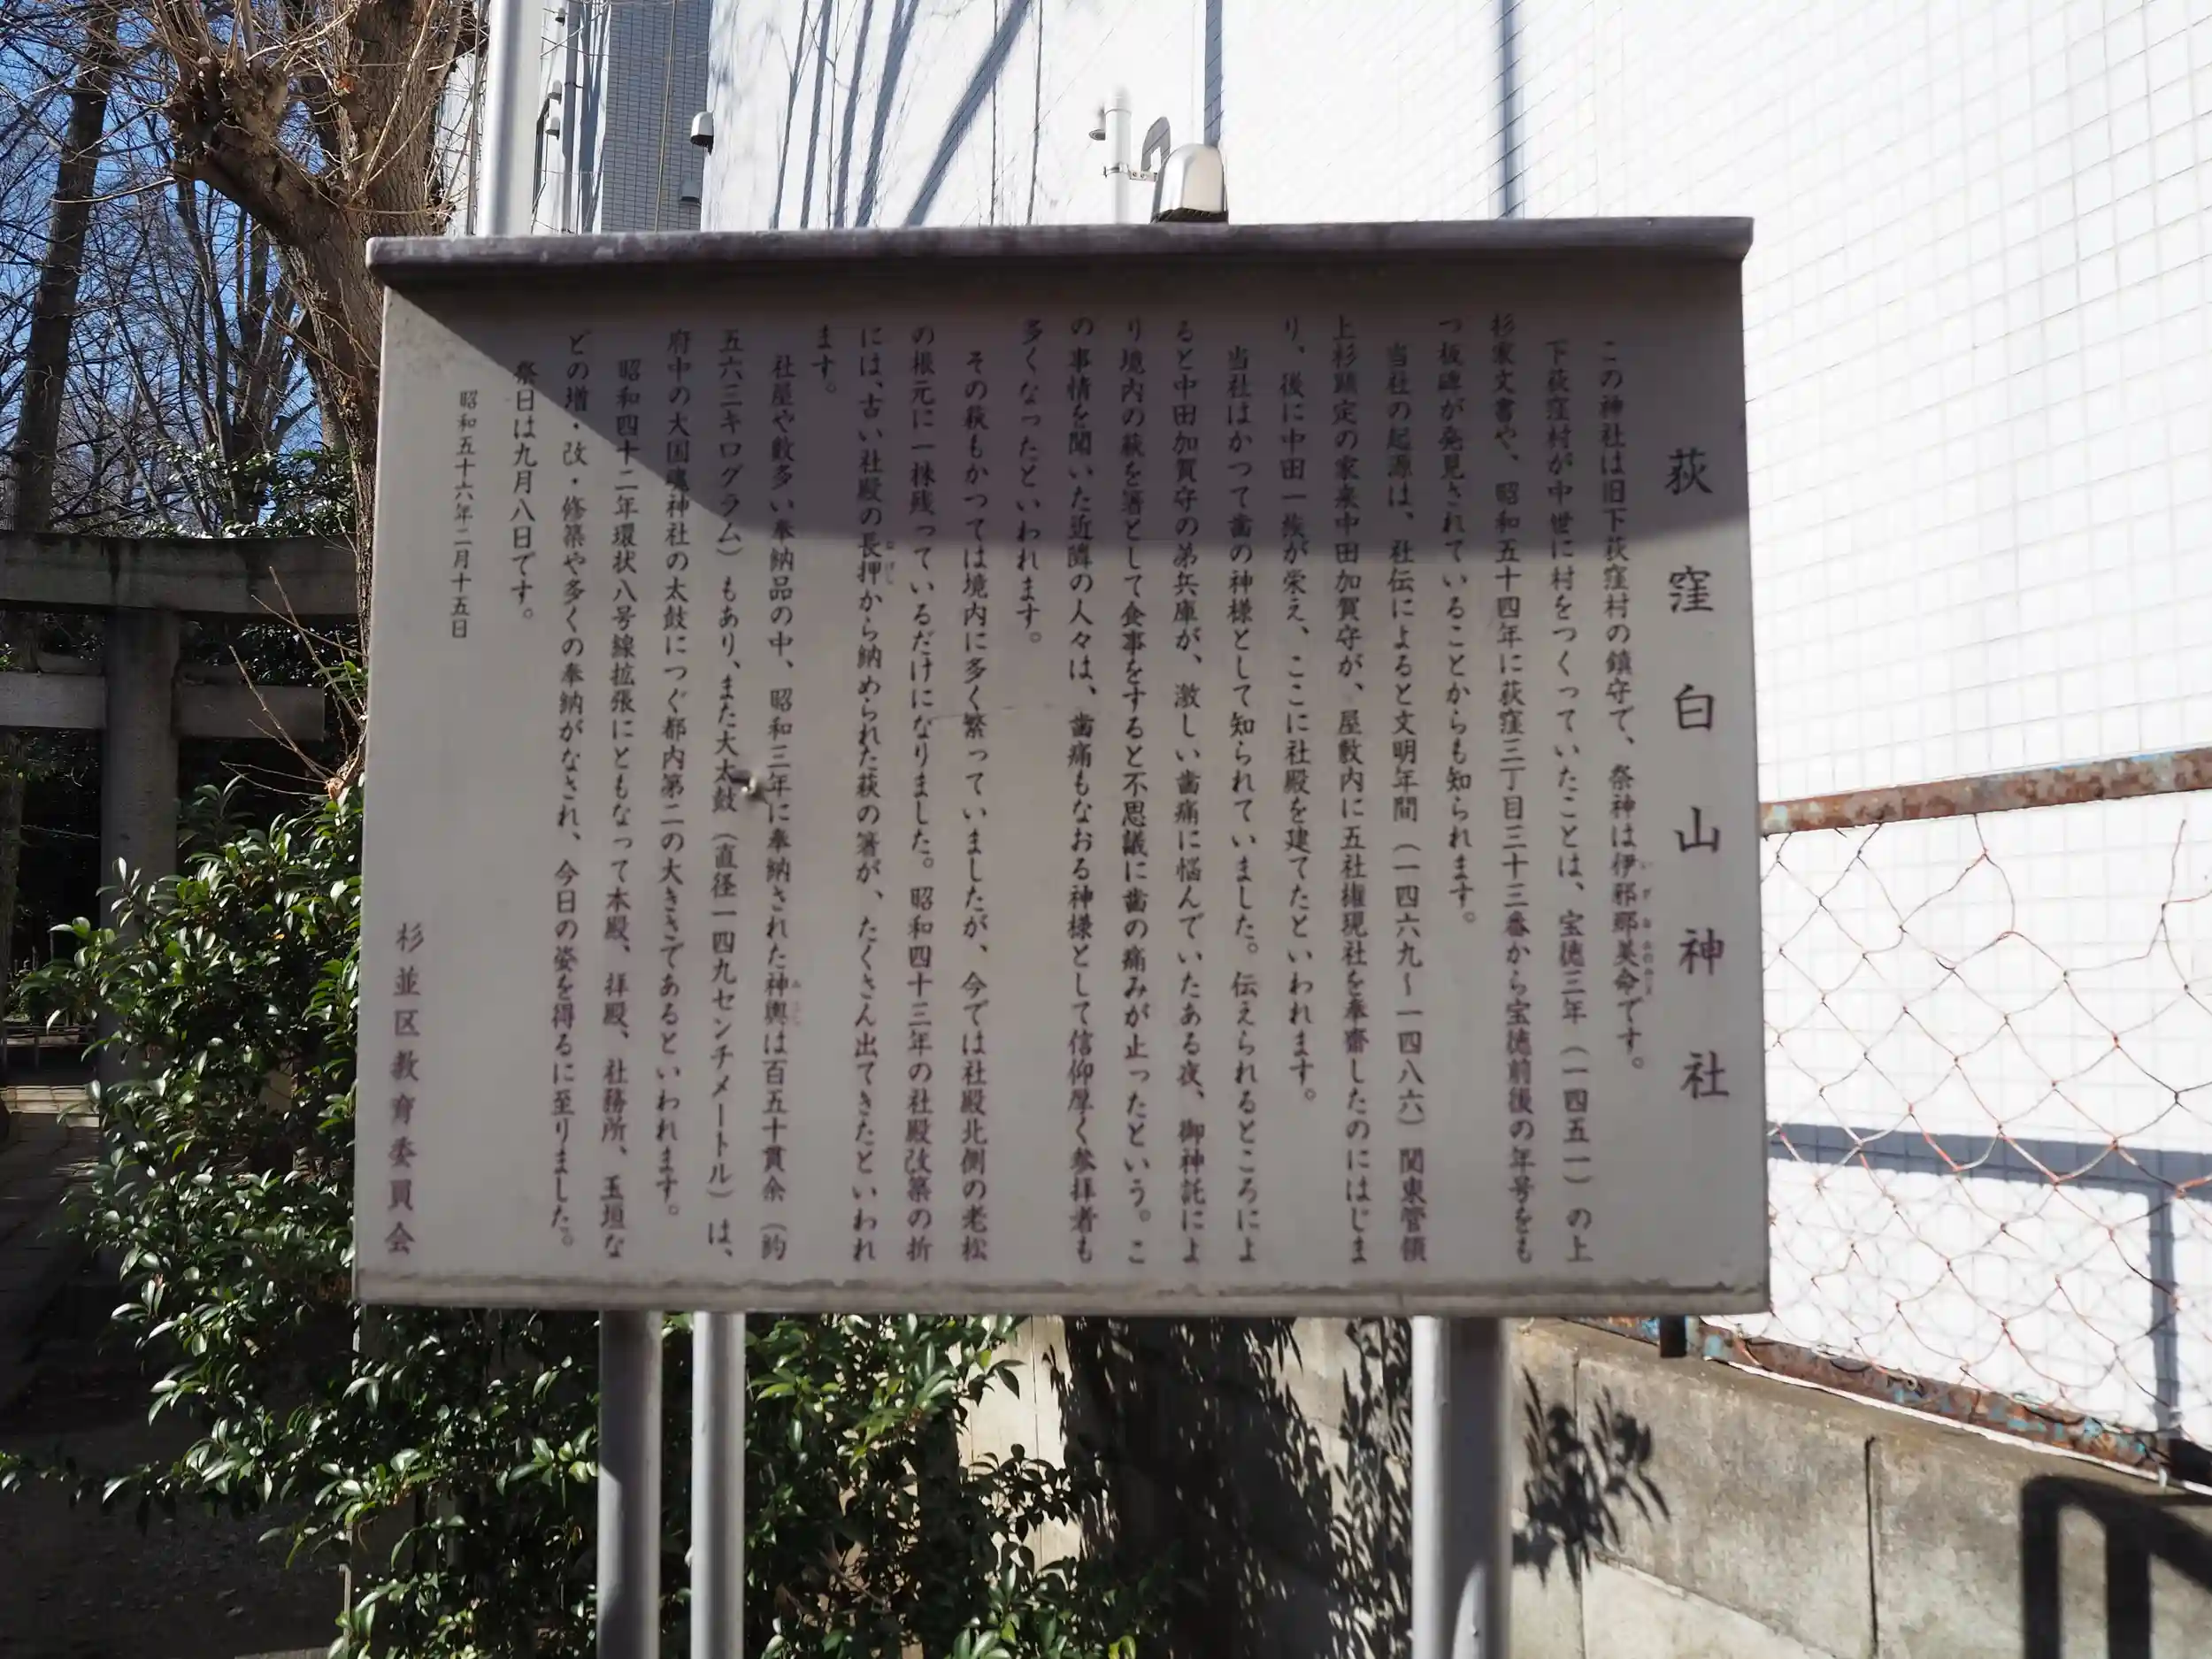 荻窪白山神社
この神社は旧下荻窪村の鎮守で、祭神は伊邪那美命です。
下荻窪村が中世に村をつくっていたことは、宝徳三年（一四五一）の上
杉家文書や、昭和五十四年に荻窪三丁目三十三番から宝徳前後の年号をも
つ板碑が発見されていることからも知られます。
当社の起源は、社伝によると文明年間（一四六九～一四八六）関東管領
上杉顕定の家来中田加賀守が、屋敷内に五社権現社を奉齋したのにはじま
り、後に中田一族が栄え、ここに社殿を建てたといわれます。
当社はかつて歯の神様として知られていました。伝えられるところによ
ると中田加賀守の弟兵庫が、激しい歯痛に悩んでいたある夜、御神託によ
り境内の萩を箸として食事をすると不思議に歯の痛みが止ったという。こ
の事情を聞いた近隣の人々は、歯痛もなおる神様として信仰厚く参拝者も
多くなったといわれます。
その萩もかつては境内に多く繁っていましたが、今では社殿北側の老松
の根元に一株残っているだけになりました。昭和四十三年の社殿改築の折
には、古い社殿の長押から納められた萩の箸が、たくさん出てきたといわれ
ます。
社屋や数多い奉納品の中、昭和三年に奉納された神輿は百五十貫余（約
五六三キログラム）もあり、また大太鼓（直径一四九センチメートル）は、
府中の大国魂神社の太鼓につぐ都内第二の大きさであるといわれます。
昭和四十二年環状八号線拡張にともなって本殿、拝殿、社務所、玉垣な
どの増・改・修築や多くの奉納がなされ、今日の姿を得るに至りました。
祭日は九月八日です。
昭和五十六年二月十五日
杉並区教育委員会